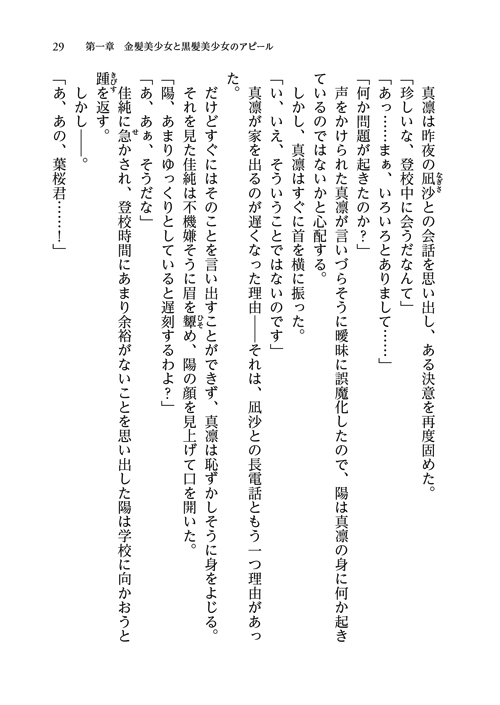 29　第一章　金髪美少女と黒髪美少女のアピール
真凛は昨夜の凪沙との会話を思い出し、ある決意を再度固めた。
「珍しいな、登校中に会うだなんて」
「あっ……まぁ、いろいろとありまして……」
「何か問題が起きたのか？」
声をかけられた真凛が言いづらそうに曖昧に誤魔化したので、陽は真凛の身に何か起き
ているのではないかと心配する。
しかし、真凛はすぐに首を横に振った。
「い、いえ、そういうことではないのです」
真凛が家を出るのが遅くなった理由――それは、凪沙との長電話ともう一つ理由があっ
た。
だけどすぐにはそのことを言い出すことができず、真凛は恥ずかしそうに身をよじる。
それを見た佳純は不機嫌そうに眉を顰め、陽の顔を見上げて口を開いた。
「陽、あまりゆっくりとしていると遅刻するわよ？」
「あ、あぁ、そうだな」
佳純に急かされ、登校時間にあまり余裕がないことを思い出した陽は学校に向かおうと
踵を返す。
しかし――。
「あ、あの、葉桜君……！」